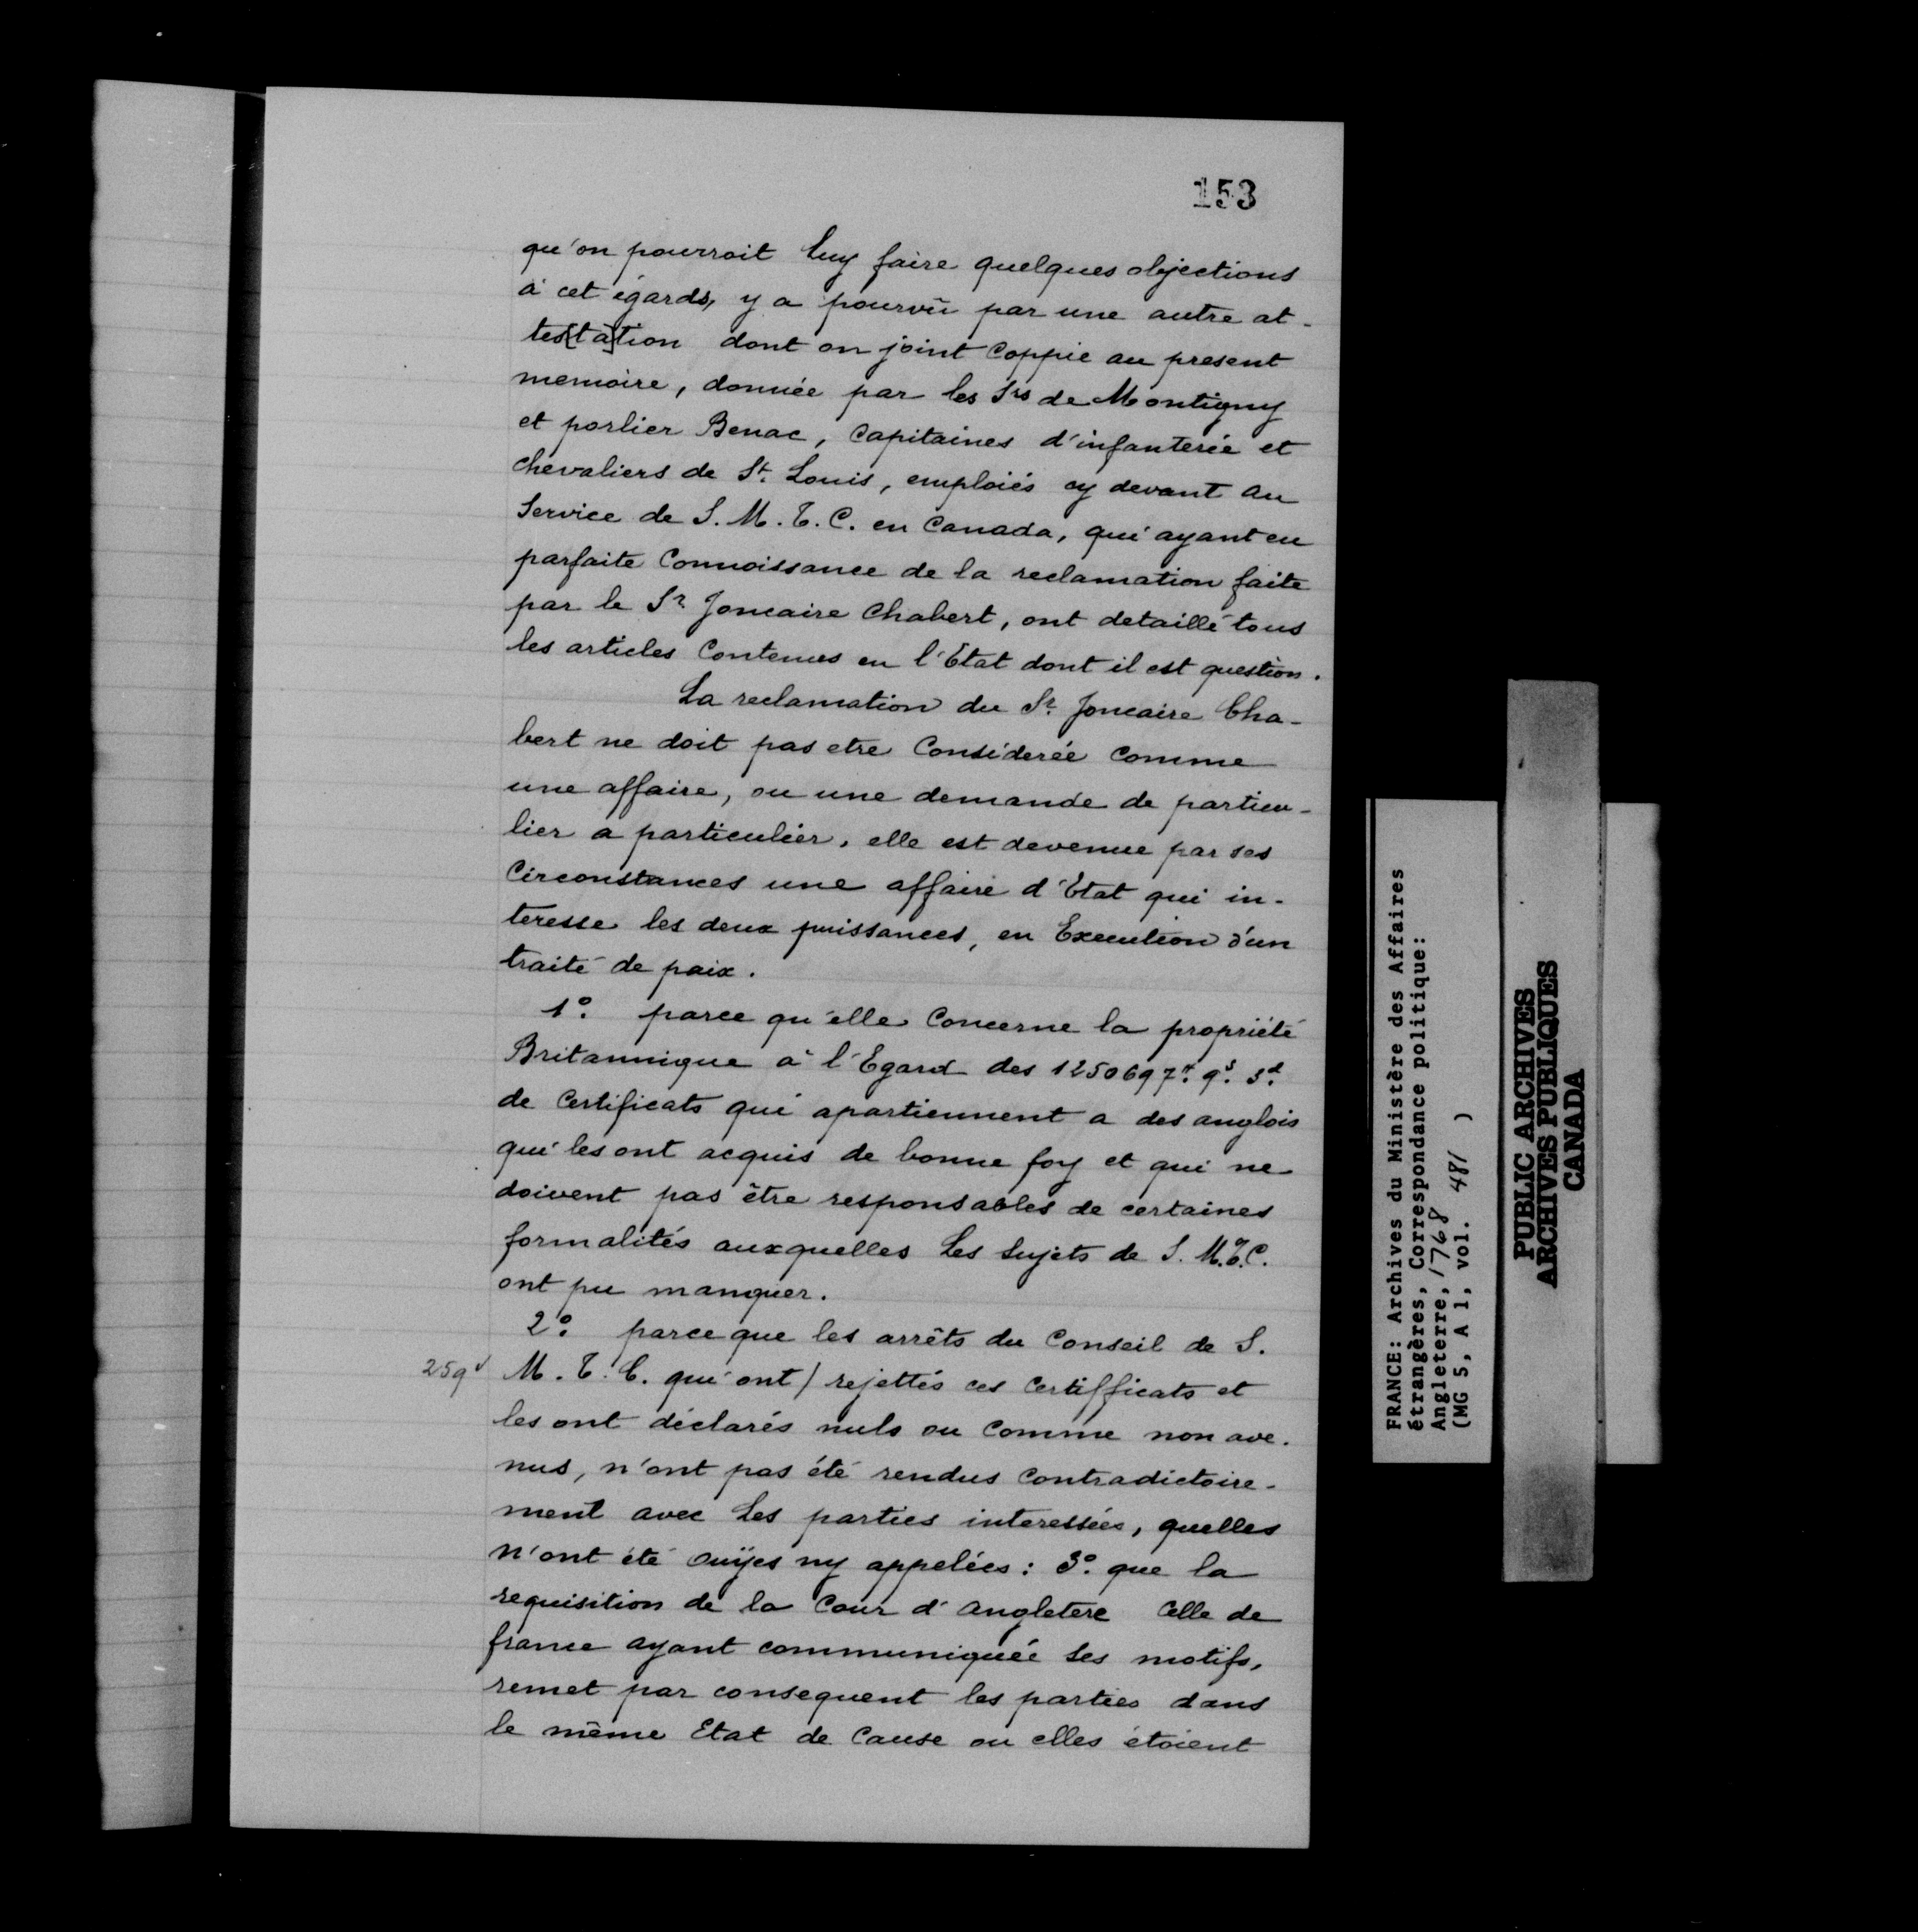 153
qu'on pourroit Luy faire quelques objections
à cet égards, y a pourvû par une autre at-
tes[ta]tion dont on joint Coppie au present
memoire, donnée par les Srs de Montigny
et porlier Benac, Capitaines d'infanterie et
chevaliers de St. Louis, emploiés cy devant au
Service de S. M. T. C. en Canada, qui ayant eu
parfaite Connoissance de la reclamation faite
par le Sr. Joncaire Chabert, ont detaillé tous
les articles Contenus en l'Etat dont il est question.
La reclamation du Sr. Joncaire Cha-
bert ne doit pas etre Considerée Comme
une affaire, ou une demande de particu-
lier a particulier, elle est devenue par ses
Circonstances une affaire d'Etat qui in-
teresse les deux puissances, en Execution d'un
traité de paix.
1o. parce qu'elle Concerne la propriété
Britannique à l'Egard des 1250697# 9s. 3d.
de Certificats qui apartiennent a des anglois
qui les ont acquis de bonne foy et qui ne
doivent pas être responsables de certaines
formalités auxquelles Les Sujets de S. M. T. C.
ont pu manquer.
2o. parce que les arrêts du Conseil de S.
259v M. T. C. qui ont / rejettés ces Certifficats et
les ont déclarés nuls ou Comme non ave-
nus, n'ont pas été rendus Contradictoire-
ment avec Les parties interessées, quelles
n'ont été ouÿes ny appelées : 3o. que la
requisition de la Cour d'angletere Celle de
france ayant communiquée Ses motifs,
remet par consequent les parties dans
le même Etat de Cause ou elles étoient
FRANCE: Archives du Ministère des Affaires
étrangères, Correspondance politique:
Angleterre, 1768
(MG 5, A 1, vol. 481 )
PUBLIC ARCHIVES
ARCHIVES PUBLIQUES
CANADA